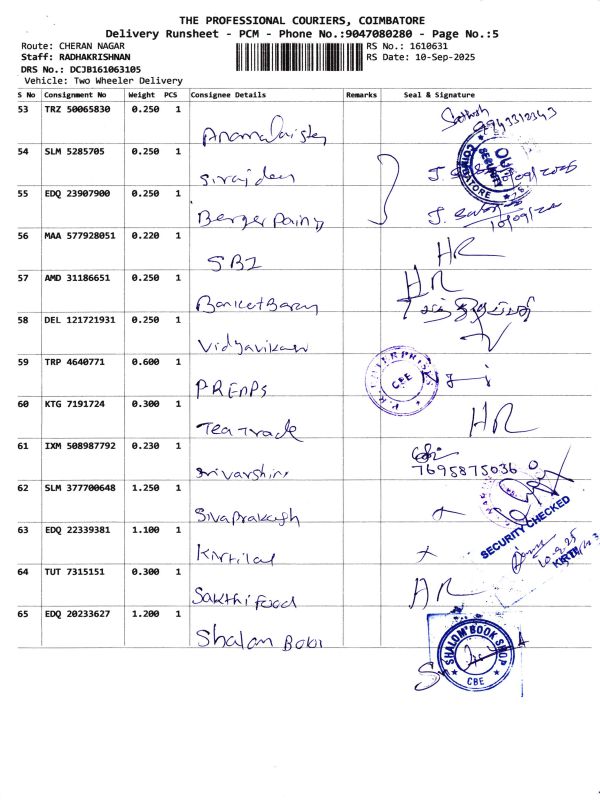 THE PROFESSIONAL COURIERS, COIMBATORE
Delivery Runsheet - PCM - Phone No.:9047080280 - Page No.:5
Route: CHERAN NAGAR
RS No.: 1610631
Staff: RADHAKRISHNAN
RS Date: 10-Sep-2025
DRS No.: DCJB161063105
Vehicle: Two Wheeler Delivery
S No Consignment No Weight PCS Consignee Details Remarks Seal & Signature
53 TRZ 50065830 0.250 1
54 SLM 5285705 0.250 1
Sirajdeen
55 EDQ 23907900 0.250 1
Berger Paints
10/09/25
56 MAA 577928051 0.220 1
SBI
HR
57 AMD 31186651 0.250 1
HR
58 DEL 121721931 0.250 1
Vidyavikasr
59 TRP 4640771 0.600 1
CBE
60 KTG 7191724 0.300 1
Tea Trade
HR
61 IXM 508987792 0.230 1
Srivarshini
7695875036
62 SLM 377700648 1.250 1
Sivaprakash
SECURITY CHECKED
63 EDQ 22339381 1.100 1
Kirtilal
10.9.25
64 TUT 7315151 0.300 1
Sakthi food
65 EDQ 20233627 1.200 1
SHALOM BOOK SHOP
CBE